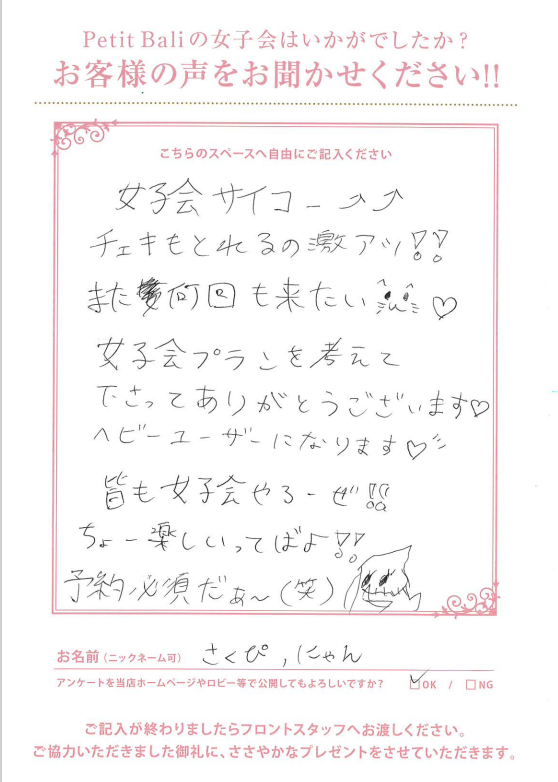 Petit Baliの女子会はいかがでしたか?
お客様の声をお聞かせください!!
こちらのスペースへ自由にご記入ください
女子会サイコー⤴⤴
チェキもとれるの激アツ!!
また何回も来たい♡
女子会プランを考えて
下さってありがとうございます♡
ヘビーユーザーになります♡
皆も女子会やろーぜ!!
ちょー楽しいってばよ!!
予約必須だぁ〜(笑)
お名前(ニックネーム可) さくぴ,にゃん
アンケートを当店ホームページやロビー等で公開してもよろしいですか? ☑OK / □NG
ご記入が終わりましたらフロントスタッフへお渡しください。
ご協力いただきました御礼に、ささやかなプレゼントをさせていただきます。